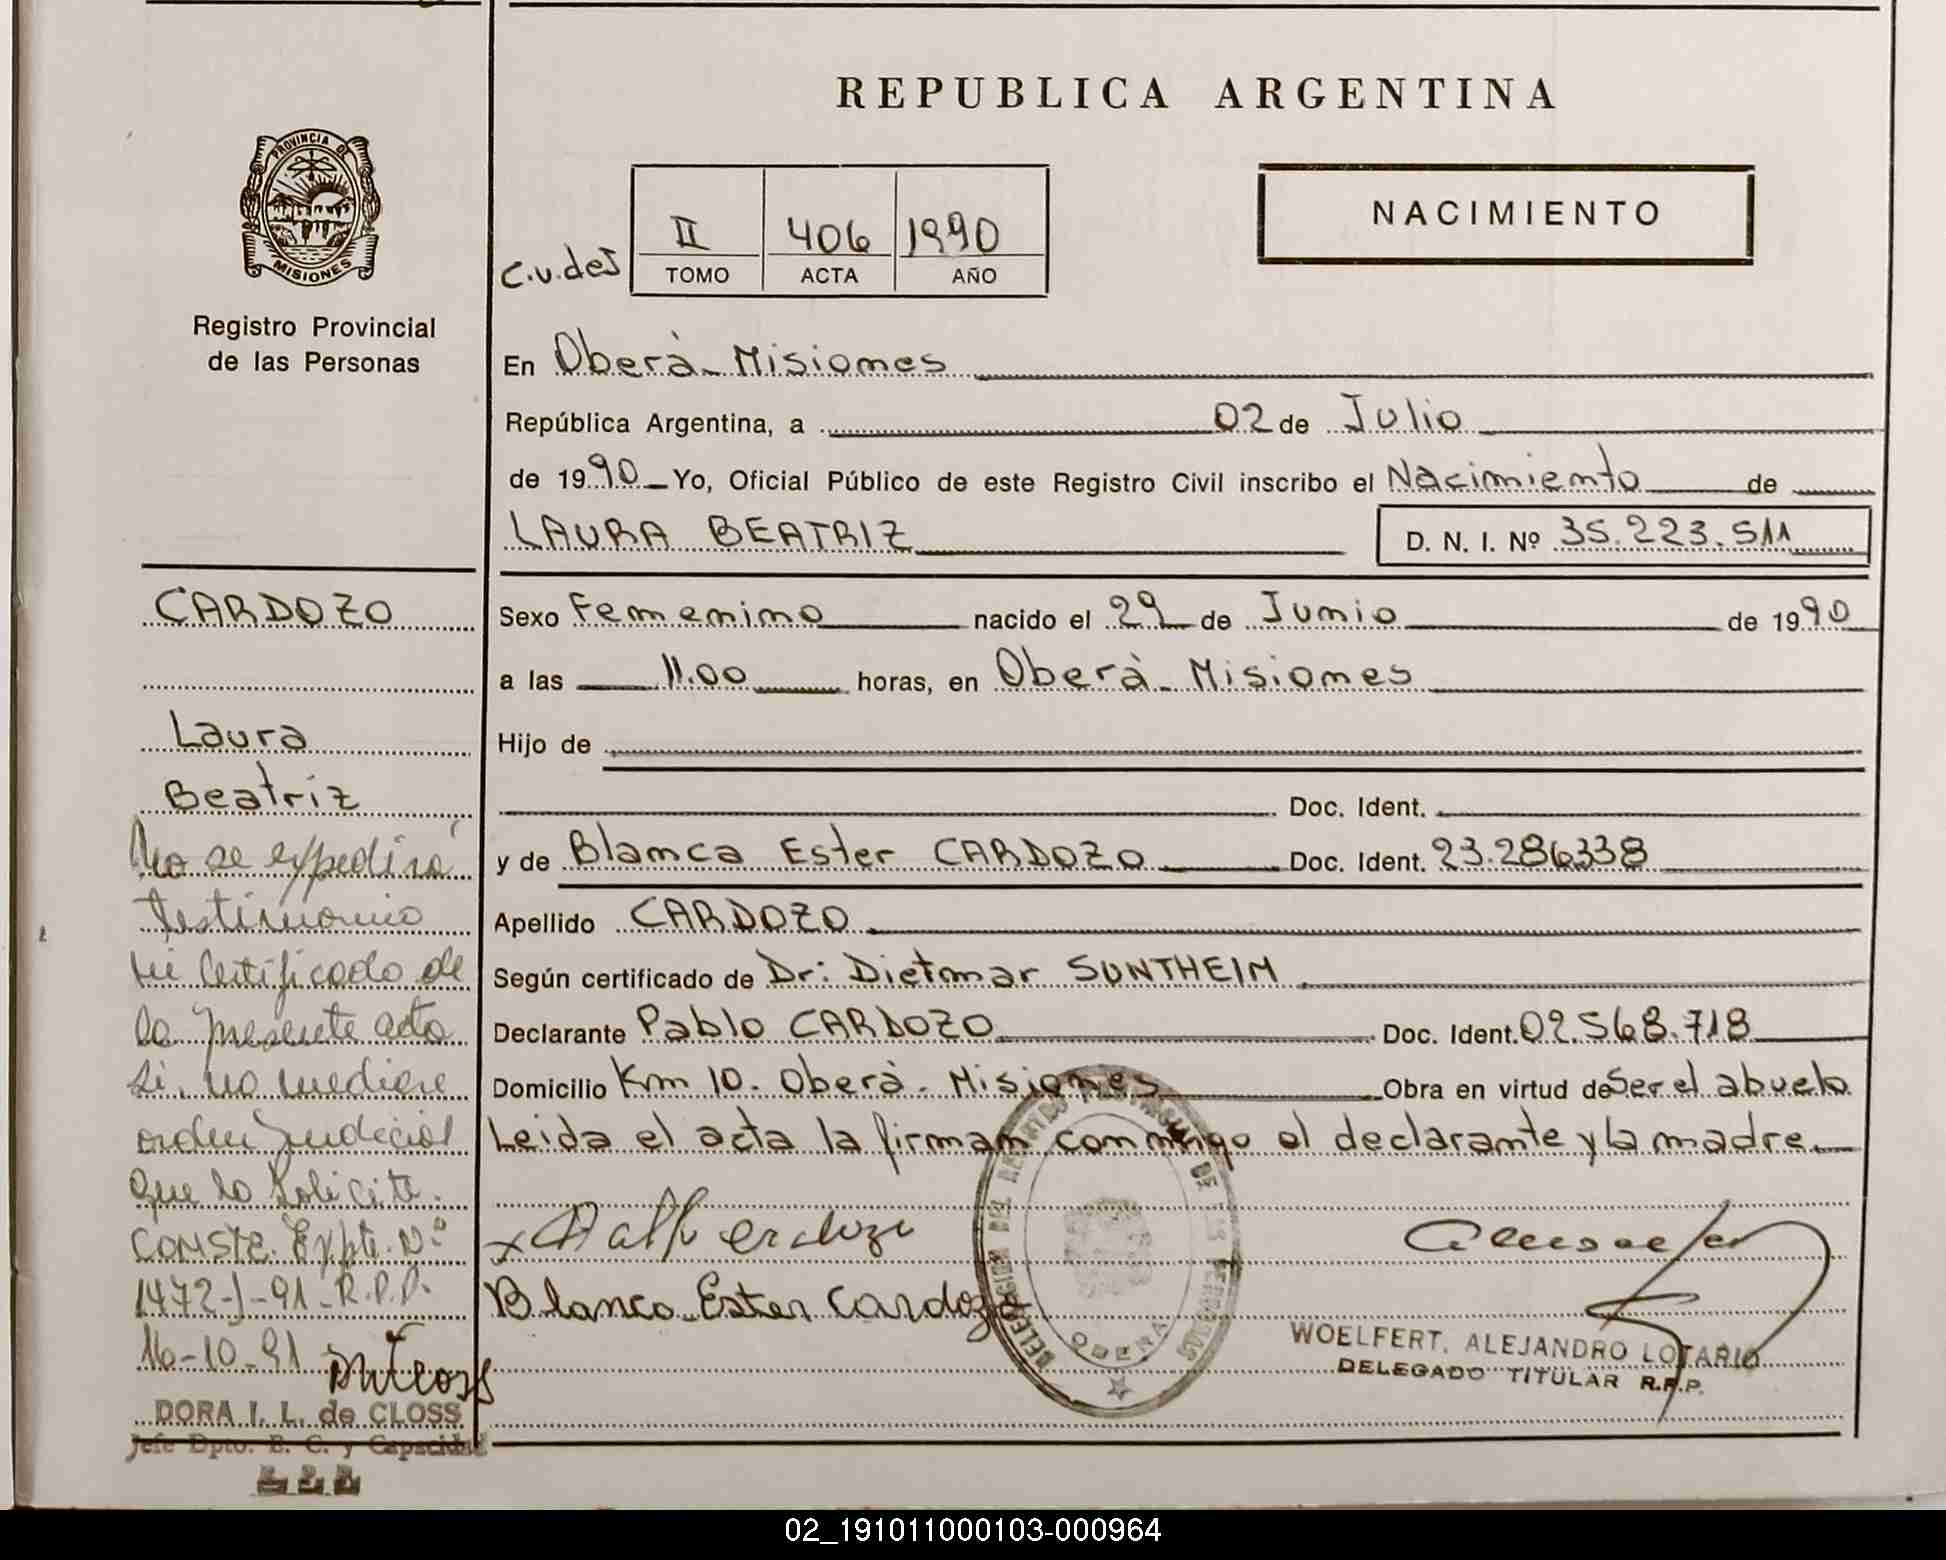 REPUBLICA ARGENTINA
PROVINCIA DE
MISIONES
Registro Provincial
de las Personas
NACIMIENTO
II 406 1990
TOMO ACTA AÑO
En Oberà - Misiones
República Argentina, a 02 de Julio
de 1990 Yo, Oficial Público de este Registro Civil inscribo el Nacimiento de
LAURA BEATRIZ D. N. I. Nº 35.223.511
CARDOZO
Laura
Beatriz
No se expedirá
testimonio
ni Certificado de
la presente acta
si, no mediere
orden Judicial
que lo Solicite.
CONSTE. Expte. Nº
1472-J-91-R.P.P.
16-10-91
DORA I. L. de CLOSS
Jefe Dpto. E. C. y Capacidad
Sexo Femenino nacido el 29 de Junio de 1990
a las 11.00 horas, en Oberà - Misiones
Hijo de
Doc. Ident.
y de Blanca Ester CARDOZO Doc. Ident. 23.286338
Apellido CARDOZO
Según certificado de Dr: Dietmar SUNTHEIM
Declarante Pablo CARDOZO Doc. Ident. 02.568.718
Domicilio Km 10. Oberà - Misiones Obra en virtud de Ser el abuelo
Leida el acta la firman conmigo el declarante y la madre.
Blanca Ester Cardozo
DELEGACION DEL REGISTRO PROVINCIAL DE LAS PERSONAS
OBERA
WOELFERT, ALEJANDRO LOTARIO
DELEGADO TITULAR R.P.P.
02_191011000103-000964